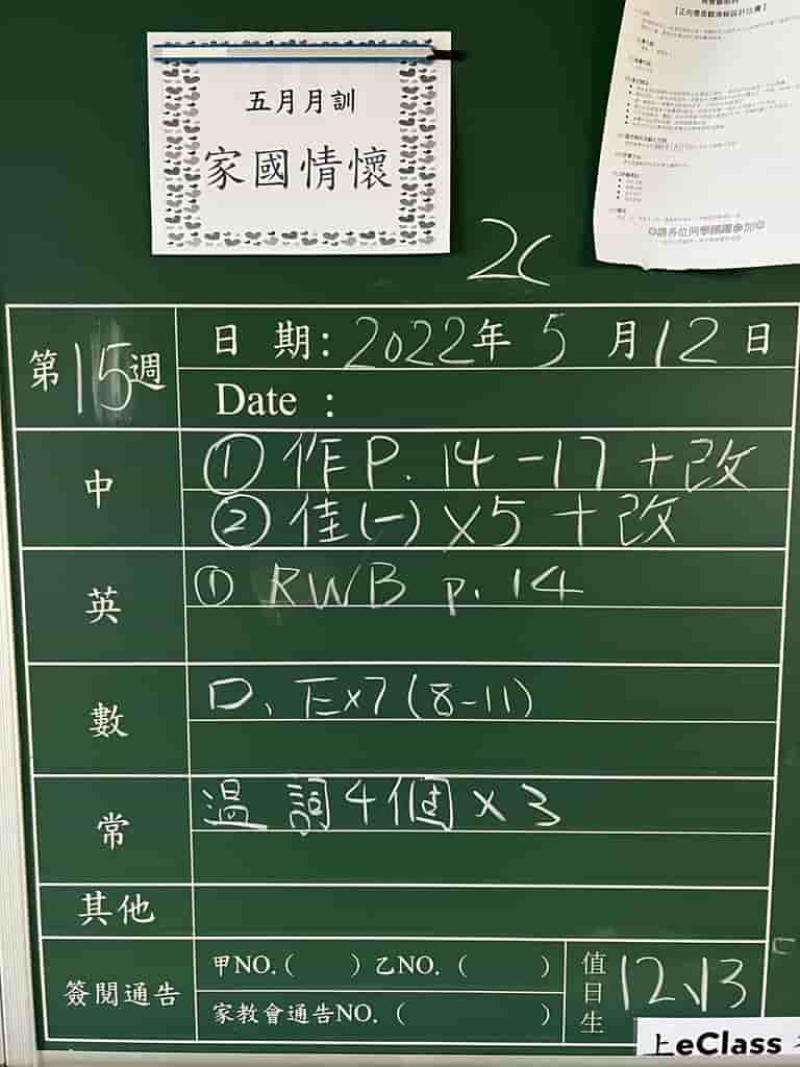 五月月訓
家國情懷
2C
第15週
日 期: 2022年 5 月12日
Date :
中
① 作 P. 14-17 + 改
② 佳(一) ×5 + 改
英
① RWB p. 14
數
口、Ex7(8-11)
常
溫 詞 4個 × 3
其他
簽閱通告
甲NO.( ) 乙NO. ( )
家教會通告NO. ( )
值日生
12、13
上eClass
請各位同學踴躍參加